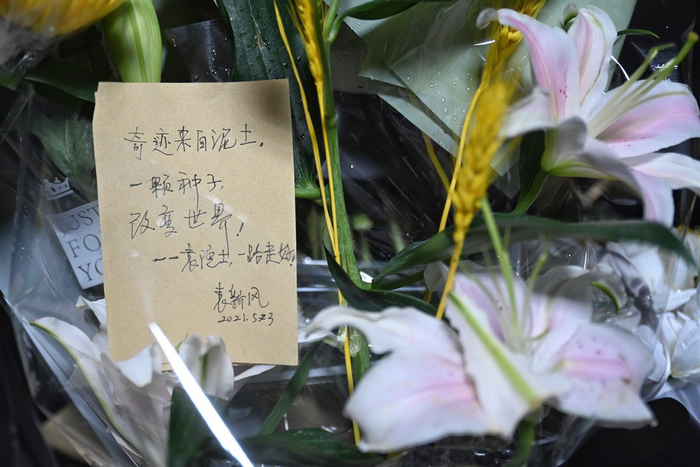 奇迹来自泥土。
一颗种子.
改变世界！
——袁院士，一路走好！
袁新风
2021.5.23
UST
FO
YO